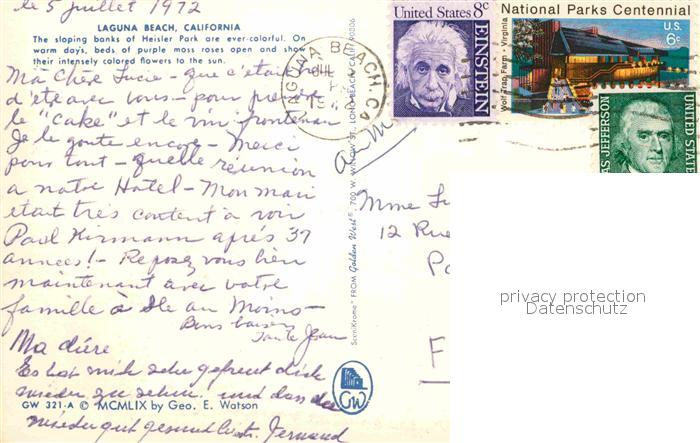 le 5 juillet 1972
LAGUNA BEACH, CALIFORNIA
The sloping banks of Heisler Park are ever-colorful. On
warm days, beds of purple moss roses open and show
their intensely colored flowers to the sun.
Ma Chère Lucie - que c'était
d'être avec vous - pour prendre
le "Cake" et le vin
Je le goute encore - Merci
pour tout - quelle réunion
a notre Hotel - Mon mari
etait très content à voir
Paul Hirmann après 37
années! - Reposez vous bien
maintenant avec votre
famille à Ile au Moins -
Bons baisers
Tante Jean
Ma
Es hat mich sehr gefreut dich
wieder zu sehen. und das du
wieder gut gesund bist.
GW 321-A © MCMLIX by Geo. E. Watson
SceniKrome FROM Golden West, 700 W. WILLOW ST., LONG BEACH, CALIF. 90806
GW
LAGUNA BEACH, CA
JUL
United States 8c
EINSTEIN
National Parks Centennial
Wolf Trap Farm · Virginia
U.S.
6c
AS JEFFERSON
UNITED STATE
Mme
12 Rue
F
privacy protection
Datenschutz